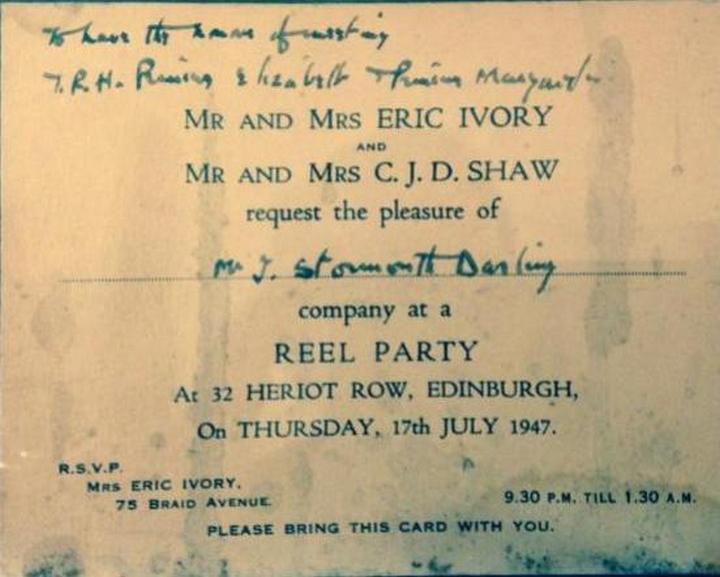 To have the honour of meeting
T.R.H. Princess Elizabeth & Princess Margaret
MR AND MRS ERIC IVORY
AND
MR AND MRS C. J. D. SHAW
request the pleasure of
Mr J. Stormonth Darling
company at a
REEL PARTY
At 32 HERIOT ROW, EDINBURGH,
On THURSDAY, 17th JULY 1947.
R.S.V.P.
MRS ERIC IVORY,
75 BRAID AVENUE.
9.30 P.M. TILL 1.30 A.M.
PLEASE BRING THIS CARD WITH YOU.